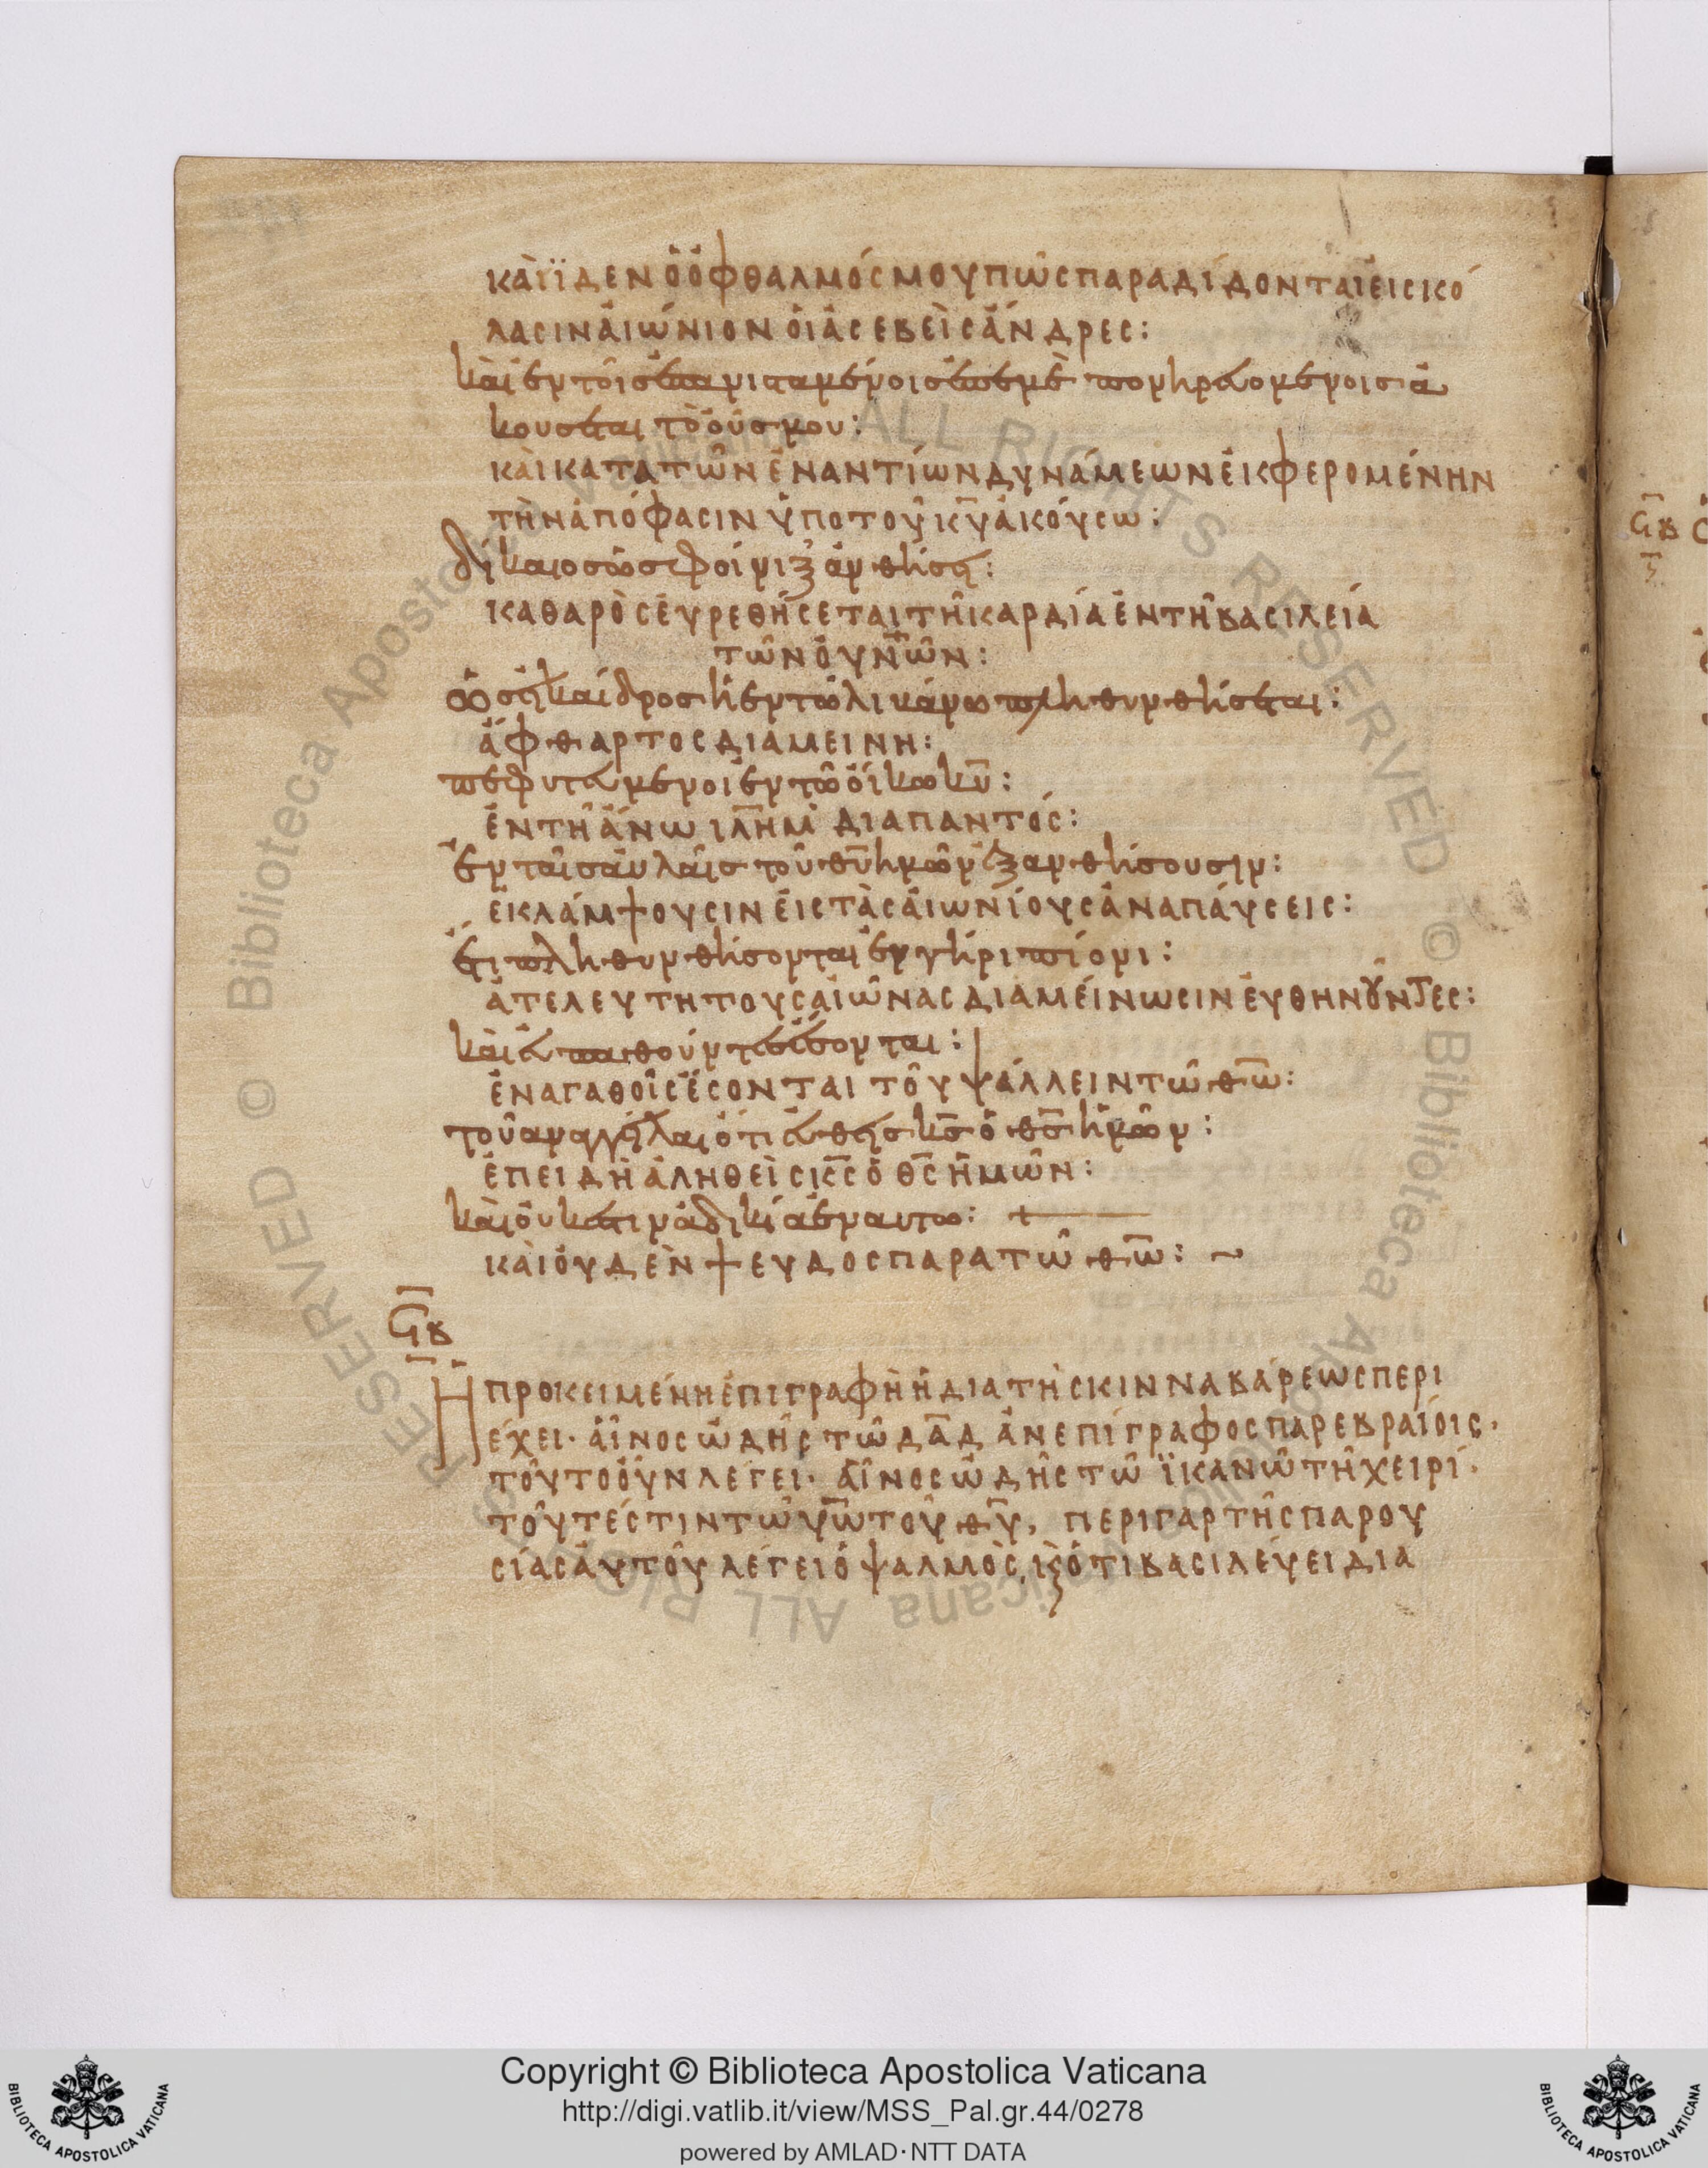 καὶ ἴδεν ὁ ὀφθαλμός μου πῶς παραδίδονται εἰς κό
λασιν αἰώνιον οἱ ἀσεβεῖς ἄνδρες:
καὶ ἐν τοῖς ἐπανισταμένοις ἐπ' ἐμὲ πονηρευομένοις ἀ
κούσεται τὸ οὖς μου:
καὶ κατα τῶν ἐναντίων δυνάμεων ἐκφερομένην
τὴν ἀπόφασιν ὑπο τοῦ κ̅υ̅ ἀκούσω:
δίκαιος ὡς φοίνιξ ἀνθήσει:
καθαρὸς εὑρεθήσεται τῆ καρδία ἐν τῆ βασιλεία
τῶν οὐν̅ῶν:
ὡσεὶ καίδρος ἡ ἐν τῶ λιβάνω πληθυνθήσεται:
ἄφθαρτος διαμείνη:
πεφυτευμένοι ἐν τῶ οἴκω κ̅υ̅:
ἐν τῆ ἄνω ιλ̅ημ διαπαντός:
ἐν ταῖς αὐλαῖς τοῦ θ̅υ̅ ἡμῶν ἐξανθήσουσιν:
ἐκλάμψουσιν εἰς τὰς αἰωνίους ἀναπαύσεις:
ἔτι πληθυνθήσονται ἐν γήρι πίονι:
ἀτελευτητους αἰῶνας διαμείνωσιν εὐθηνοῦντες:
καὶ εὐπαθοῦντες ἔσονται:
ἐν αγαθοῖς ἔσονται τοῦ ψάλλειν τῶ θ̅ω̅:
τοῦ αναγγεῖλαι ὅτι εὐθεὶς κ̅ς̅ ὁ θ̅ς̅ ἡμῶν:
ἐπειδὴ ἀληθεὶς κ̅ς̅ ὁ θ̅ς̅ ἡμῶν:
καὶ οὐκ ἔστιν ἀδικία ἐν αυτω: +
καὶ οὐδὲν ψευδος παρα τῶ θ̅ω̅: ~
ϛ̅β
Η προκειμένη ἐπιγραφὴ ἡ δια τῆς κινναβάρεως περι
έχει· αἶνος ὠδῆς τῶ δ̅α̅δ̅ ἀνεπίγραφος παρ εβραίοις·
τοῦτο οὖν λέγει· αἶνος ὠδῆς τῶ ἱκανῶ τῆ χειρί·
τοῦτέστιν τῶ υ̅ω̅ τοῦ θ̅υ̅, περι γαρ τῆς παρου
σίας αὐτοῦ λέγει ὁ ψαλμὸς, κ̀ ὅτι βασιλεύει δια
Copyright © Biblioteca Apostolica Vaticana
http://digi.vatlib.it/view/MSS_Pal.gr.44/0278
powered by AMLAD·NTT DATA